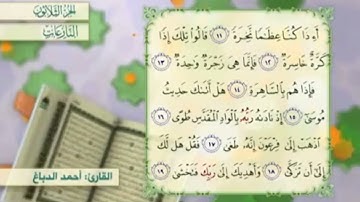 الجزء الثلاثون
النازعات
أَءِذَا كُنَّا عِظَٰمًا نَّخِرَةً ١١ قَالُوا۟ تِلْكَ إِذًا
كَرَّةٌ خَاسِرَةٌ ١٢ فَإِنَّمَا هِىَ زَجْرَةٌ وَٰحِدَةٌ ١٣
فَإِذَا هُم بِٱلسَّاهِرَةِ ١٤ هَلْ أَتَىٰكَ حَدِيثُ
مُوسَىٰٓ ١٥ إِذْ نَادَىٰهُ رَبُّهُۥ بِٱلْوَادِ ٱلْمُقَدَّسِ طُوًى ١٦
ٱذْهَبْ إِلَىٰ فِرْعَوْنَ إِنَّهُۥ طَغَىٰ ١٧ فَقُلْ هَل لَّكَ
إِلَىٰٓ أَن تَزَكَّىٰ ١٨ وَأَهْدِيَكَ إِلَىٰ رَبِّكَ فَتَخْشَىٰ ١٩
القارئ: أحمد الدباغ